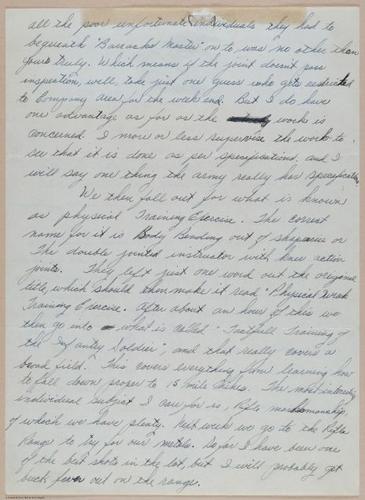 all the poor unfortunate individuals they had to
bequeath "Barracks Master" on to, was no other than
yours truly. Which means if the joint doesn't pass
inspection, well, take just one guess who gets restricted
to Company area for the week end. But I do have
one advantage as far as the work is
concerned I more or less supervise the work to
see that it is done as per specifications, and I
will say one thing the army really has specifications
We then fall out for what is known
as physical Training Exercise. The correct
name for it is Body Bending out of shape
The double jointed instructor with knee action
joints. They left just one word out the original
title, which should then make it read, "Physical Wreck
Training Exercise. After about an hour of this we
then go into what is called "Tactical Training of
the Infantry Soldier", and that really covers a
broad field. This covers everything from learning how
to fall down proper to 15 mile hikes. The most interesting
individual subject I care for is, Rifle marksmanship,
of which we have plenty. Next week we go to the Rifle
Range to try for our medals. So far I have been one
of the best shots in the lot, but I will probably get
buck fever out on the range.